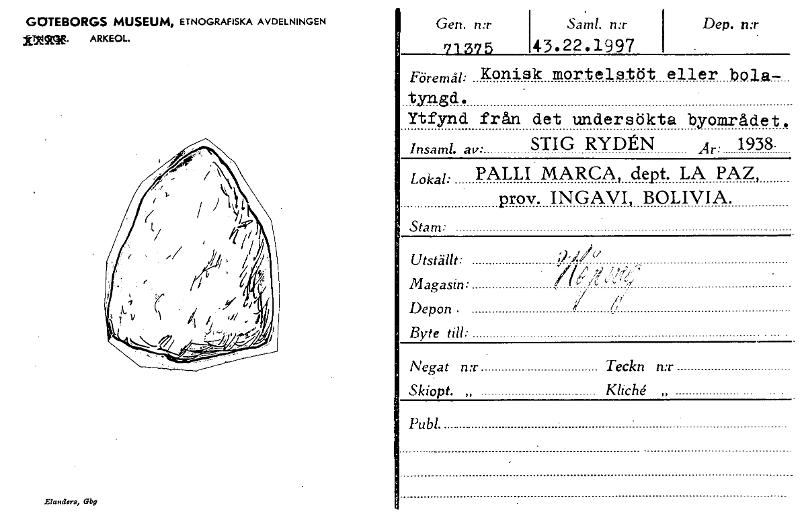 GÖTEBORGS MUSEUM, ETNOGRAFISKA AVDELNINGEN
ARKEOL.
Elanders, Gbg
Gen. n:r Saml. n:r Dep. n:r
71375 43.22.1997
Föremål: Konisk mortelstöt eller bola-
tyngd.
Ytfynd från det undersökta byområdet.
Insaml. av: STIG RYDÉN År: 1938
Lokal: PALLI MARCA, dept. LA PAZ,
prov. INGAVI, BOLIVIA.
Stam:
Utställt:
Magasin:
Depon.
Byte till:
Negat n:r Teckn n:r
Skiopt. „ Kliché „
Publ.